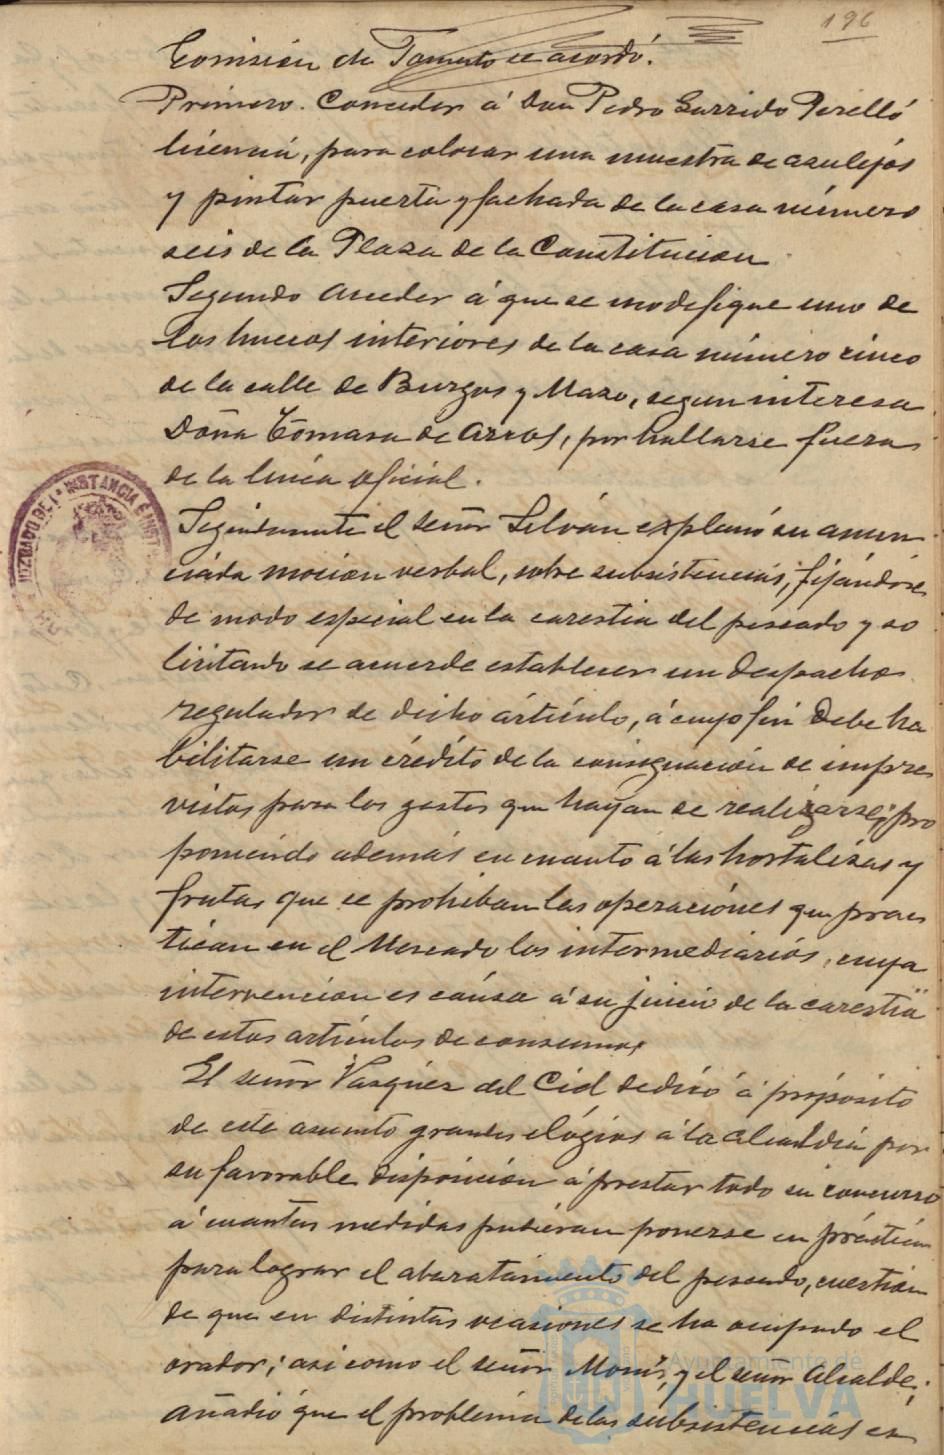 196
Comisión de Fomento se acordó.
Primero. Conceder á Don Pedro Garrido Perelló
licencia, para colocar una muestra de azulejos
y pintar puerta y fachada de la casa número
seis de la Plaza de la Constitucion.
Segundo Acceder á que se modifique uno de
los huecos interiores de la casa número cinco
de la calle de Burgos y Mazo, segun interesa
Doña Tomasa de Arcos, por hallarse fuera
de la linea oficial.
Seguidamente el señor Selván explanó su anun
ciada mocion verbal, sobre subsistencias, fijándose
de modo especial en la carestia del pescado y so
licitando se acuerde establecer un despacho
regulador de dicho artículo, á cuyo fin debe ha
bilitarse un crédito de la consignación de impre
vistos para los gastos que hayan de realizarse; pro
poniendo además en cuanto á las hortalizas y
frutas que se prohiban las operaciónes que prac
tican en el Mercado los intermediarios, cuya
intervencion es causa á su juicio de la carestía
de estos artículos de consumo.
El señor Vazquez del Cid dedicó á propósito
de este asunto grandes elógios á la Alcaldia por
su favorable disposición á prestar todo su concurso
á cuantas medidas pudieran ponerse en práctica
para lograr el abaratamiento del pescado, cuestion
de que en distintas ocasiones se ha ocupado el
orador; asi como el señor Monís, y el señor Alcalde;
Añadió que el problema de las subsistencias es
JUZGADO DE 1ª INSTANCIA É INST
Ayuntamiento de
HUELVA